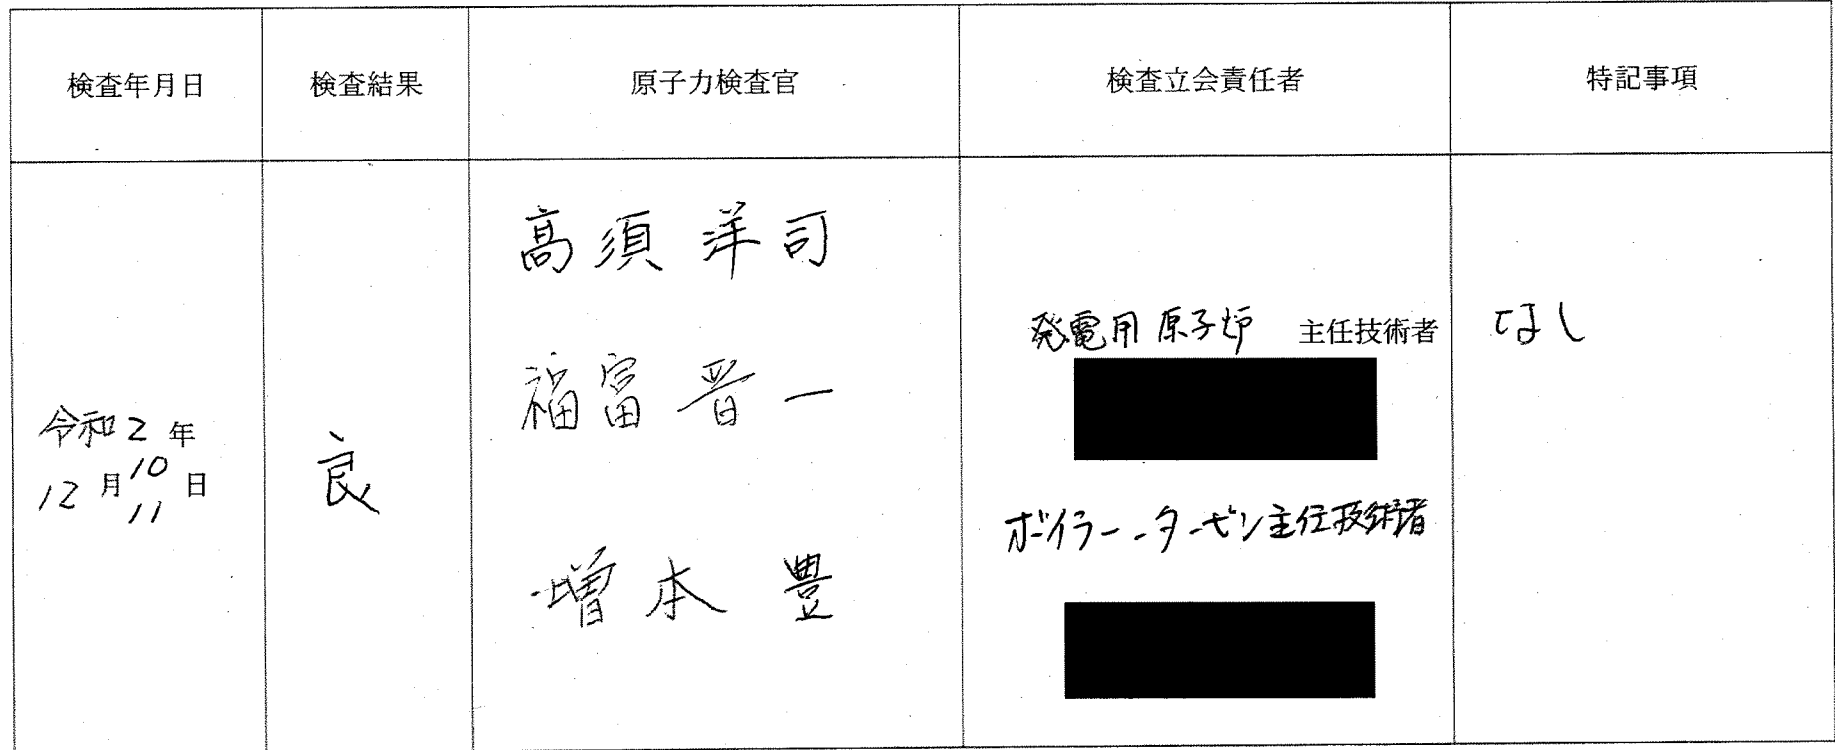 検査年月日
検査結果
原子力検査官
検査立会責任者
特記事項
令和2年
12月10日
11
良
高須 洋司
福富 晋一
増本 豊
発電用原子炉 主任技術者
ボイラー・タービン主任技術者
なし